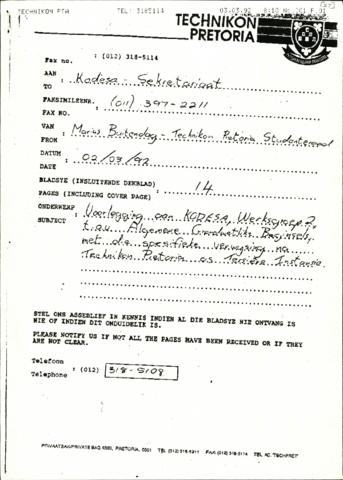 TECHNIKON PTA TEL: 3185114 03.03.92 8:10 No.201 P.01
TECHNIKON
PRETORIA
Fax no. : (012) 318-5114
AAN : Kodesa Sekretariaat
TO
FAKSIMILEENR. : (011) 397-2211
FAX NO.
VAN : Technikon Pretoria Studenteraad
FROM
DATUM : 02/03/92
DATE
BLADSYE (INSLUITENDE DEKBLAD) : 14
PAGES (INCLUDING COVER PAGE)
ONDERWERP : Voorlegging aan KODESA, Werksgroep 2,
SUBJECT t.o.v Algemene Grondwetlike Beginsels,
met die spesifieke verwysing na
Technikon Pretoria as Tersiêre Instansie
STEL ONS ASSEBLIEF IN KENNIS INDIEN AL DIE BLADSYE NIE ONTVANG IS
NIE OF INDIEN DIT ONDUIDELIK IS.
PLEASE NOTIFY US IF NOT ALL THE PAGES HAVE BEEN RECEIVED OR IF THEY
ARE NOT CLEAR.
Telefoon : (012) 318-5108
Telephone
PRIVAATSAK/PRIVATE BAG PRETORIA, 0001 TEL (012) 318-5911 FAX (012) 318-5114 TEL. AD. 'TECHPRET'